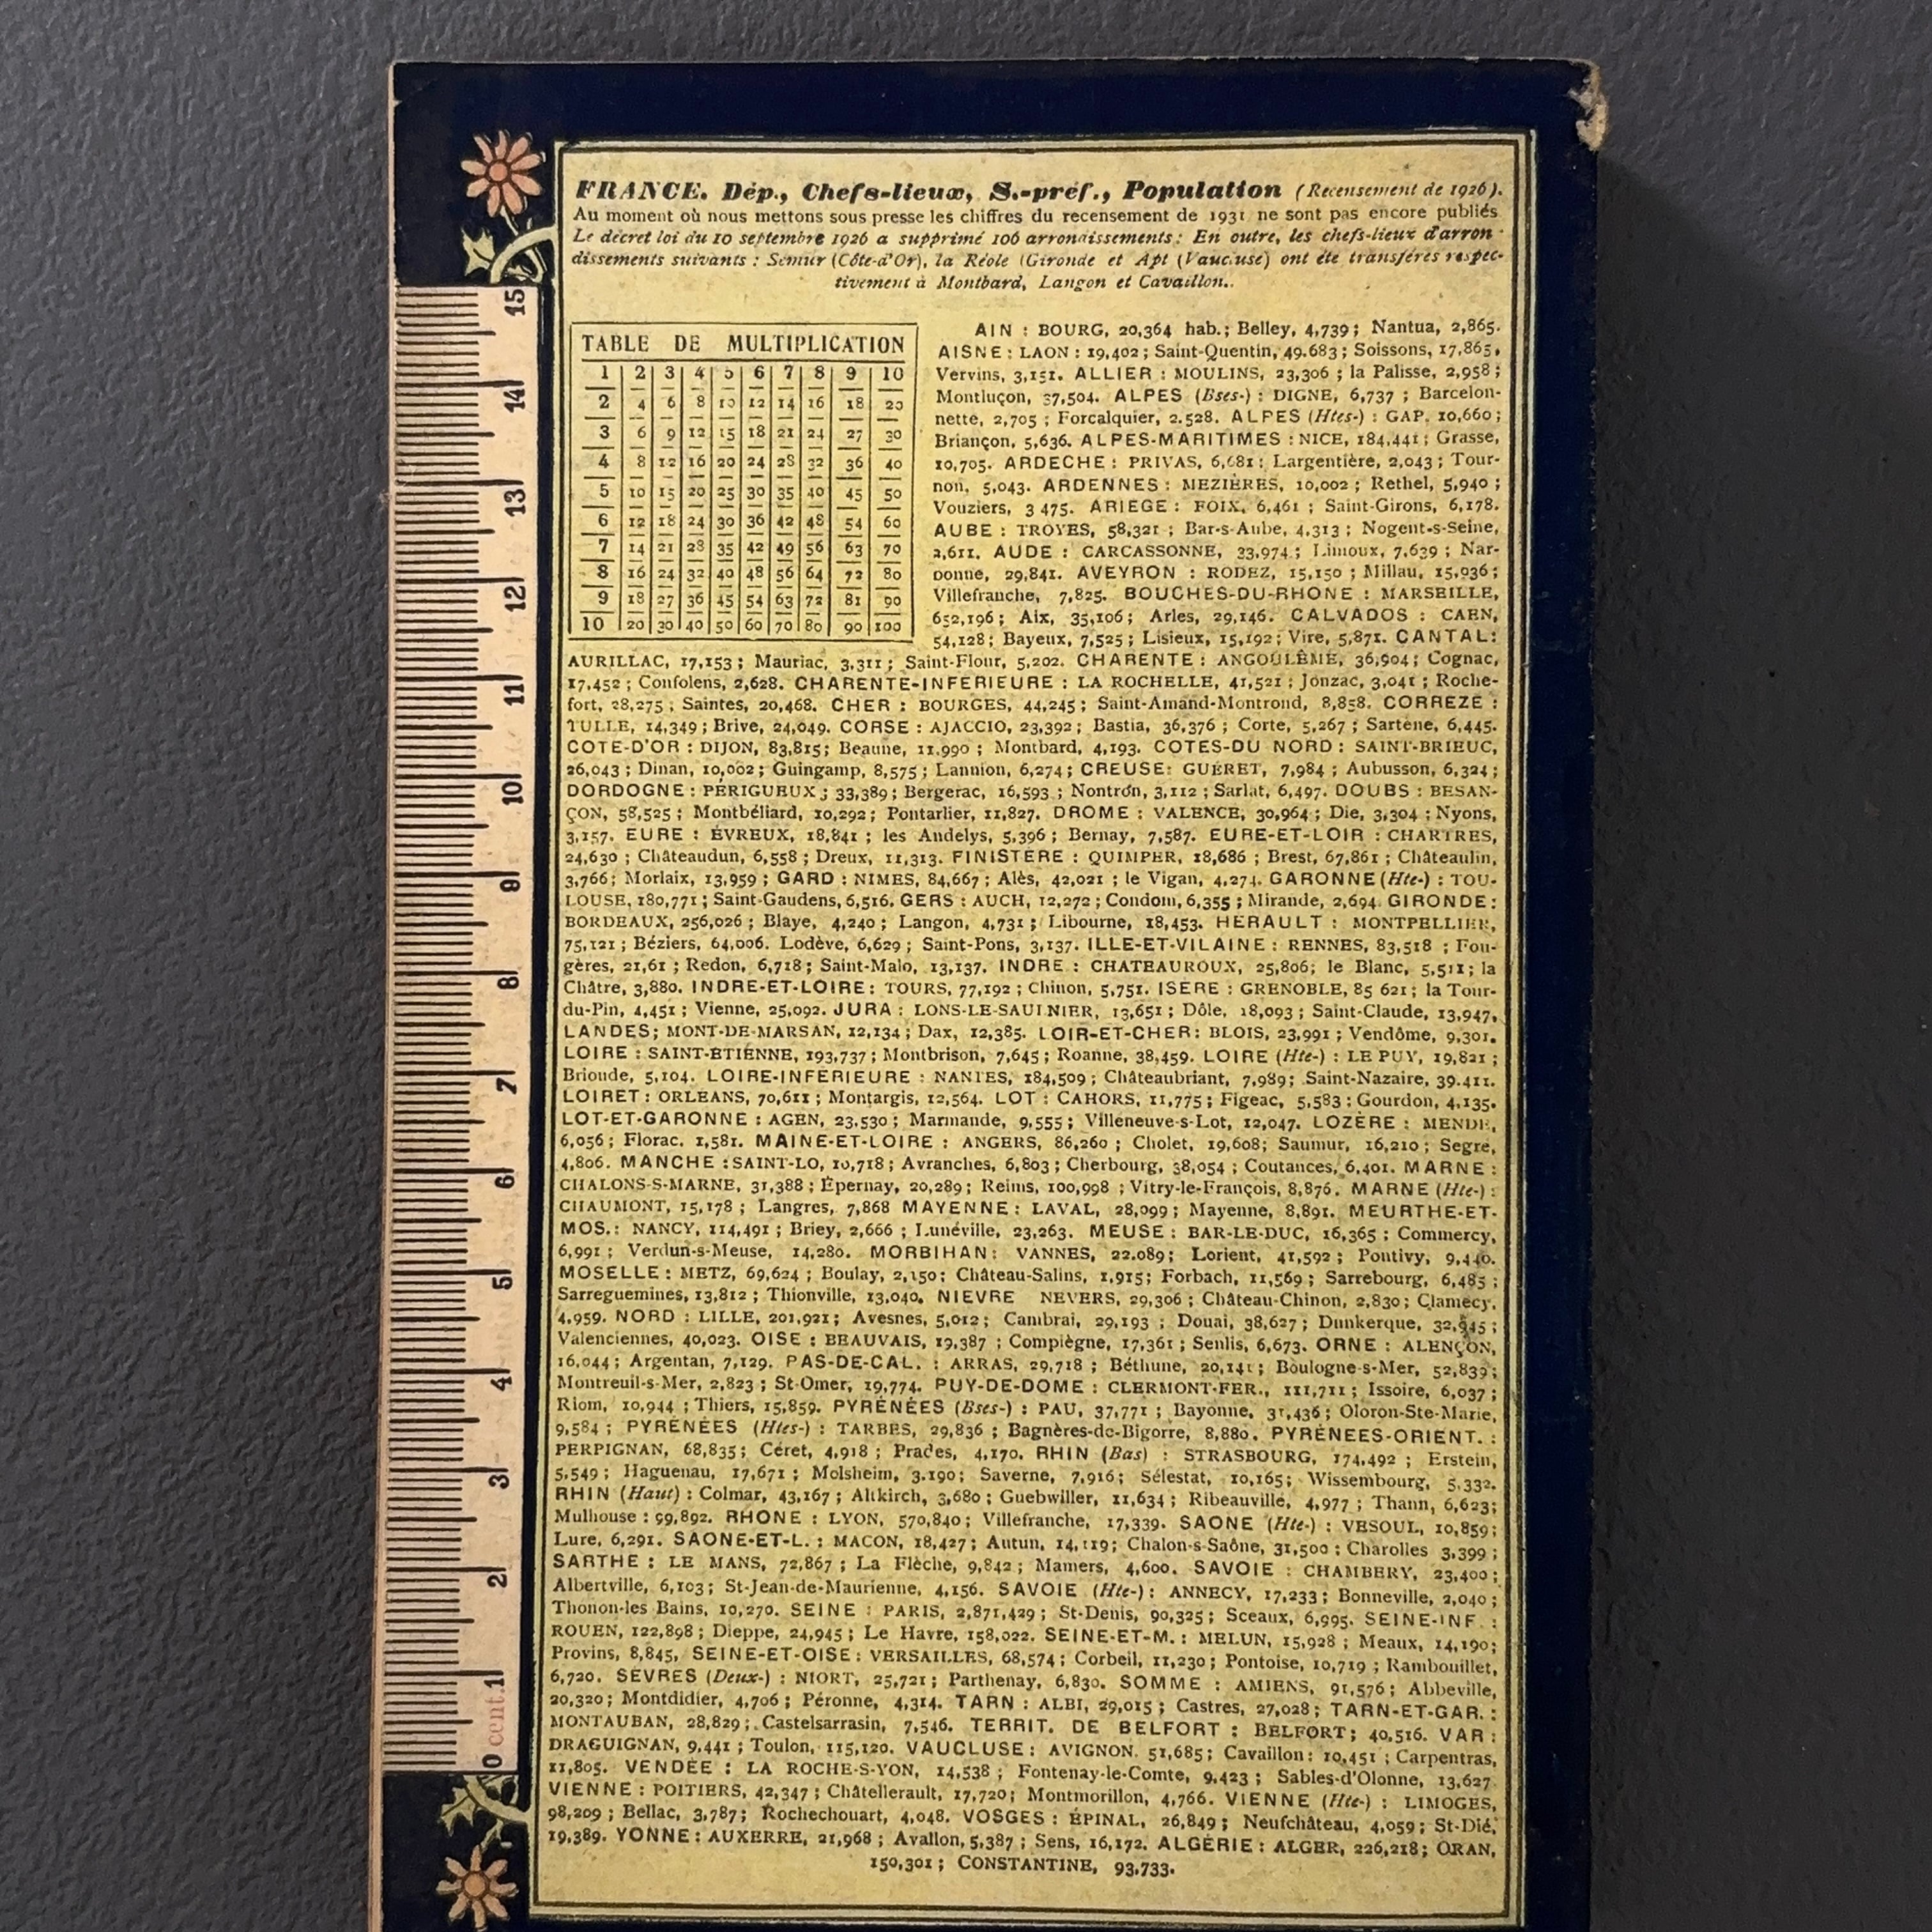 FRANCE. Dép., Chefs-lieux, S.-préf., Population (Recensement de 1926).
Au moment où nous mettons sous presse les chiffres du recensement de 1931 ne sont pas encore publiés
Le décret loi du 10 septembre 1926 a supprimé 106 arrondissements: En outre, les chefs-lieux d'arron-
dissements suivants : Semur (Côte-d'Or), la Réole (Gironde et Apt (Vaucluse) ont été transférés respec-
tivement à Montbard, Langon et Cavaillon..
TABLE DE MULTIPLICATION
1 2 3 4 5 6 7 8 9 10
2 4 6 8 10 12 14 16 18 20
3 6 9 12 15 18 21 24 27 30
4 8 12 16 20 24 28 32 36 40
5 10 15 20 25 30 35 40 45 50
6 12 18 24 30 36 42 48 54 60
7 14 21 28 35 42 49 56 63 70
8 16 24 32 40 48 56 64 72 80
9 18 27 36 45 54 63 72 81 90
10 20 30 40 50 60 70 80 90 100
AIN : BOURG, 20,364 hab.; Belley, 4,739; Nantua, 2,865.
AISNE: LAON : 19,402; Saint-Quentin, 49.683; Soissons, 17,865,
Vervins, 3,151. ALLIER : MOULINS, 23,306 ; la Palisse, 2,958;
Montluçon, 37,504. ALPES (Bses-) : DIGNE, 6,737 ; Barcelon-
nette, 2,705 ; Forcalquier, 2.528. ALPES (Htes-) : GAP. 10,660;
Briançon, 5,636. ALPES-MARITIMES : NICE, 184,441; Grasse,
10,705. ARDECHE : PRIVAS, 6,681; Largentière, 2,043 ; Tour-
non, 5,043. ARDENNES : MEZIÈRES, 10,002 ; Rethel, 5,940 ;
Vouziers, 3 475. ARIEGE : FOIX, 6,461 ; Saint-Girons, 6,178.
AUBE : TROYES, 58,321 ; Bar-s-Aube, 4,313 ; Nogent-s-Seine,
3,611. AUDE : CARCASSONNE, 33,974; Limoux, 7,639 ; Nar-
bonne, 29,841. AVEYRON : RODEZ, 15,150 ; Millau, 15,036;
Villefranche, 7,825. BOUCHES-DU-RHONE : MARSEILLE,
652,196; Aix, 35,106; Arles, 29,146. CALVADOS : CAEN,
54,128; Bayeux, 7,525; Lisieux, 15,192; Vire, 5,871. CANTAL:
AURILLAC, 17,153; Mauriac, 3,311; Saint-Flour, 5,202. CHARENTE : ANGOULÊME, 36,904; Cognac,
17,452 ; Confolens, 2,628. CHARENTE-INFERIEURE : LA ROCHELLE, 41,521 ; Jonzac, 3,041 ; Roche-
fort, 28,275 ; Saintes, 20,468. CHER : BOURGES, 44,245; Saint-Amand-Montrond, 8,858. CORREZE :
TULLE, 14,349; Brive, 24,049. CORSE : AJACCIO, 23,392; Bastia, 36,376 ; Corte, 5,267 ; Sartène, 6,445.
COTE-D'OR : DIJON, 83,815; Beaune, 11,990 ; Montbard, 4,193. COTES-DU NORD : SAINT-BRIEUC,
26,043 ; Dinan, 10,002; Guingamp, 8,575; Lannion, 6,274; CREUSE: GUÉRET, 7,984 ; Aubusson, 6,324;
DORDOGNE : PÉRIGUEUX ; 33,389; Bergerac, 16,593 ; Nontron, 3,112 ; Sarlat, 6,497. DOUBS : BESAN-
ÇON, 58,525 ; Montbéliard, 10,292; Pontarlier, 11,827. DROME : VALENCE, 30,964 ; Die, 3,304 ; Nyons,
3,157. EURE : ÉVREUX, 18,841 ; les Andelys, 5,396 ; Bernay, 7,587. EURE-ET-LOIR : CHARTRES,
24,630 ; Châteaudun, 6,558 ; Dreux, 11,313. FINISTÈRE : QUIMPER, 18,686 ; Brest, 67,861 ; Châteaulin,
3,766; Morlaix, 13,959 ; GARD : NIMES, 84,667; Alès, 42,021 ; le Vigan, 4,274. GARONNE (Hte-) : TOU-
LOUSE, 180,771; Saint-Gaudens, 6,516. GERS : AUCH, 12,272; Condom, 6,355 ; Mirande, 2,694. GIRONDE:
BORDEAUX, 256,026 ; Blaye, 4,240 ; Langon, 4,731 ; Libourne, 18,453. HERAULT : MONTPELLIER,
75,121 ; Béziers, 64,006. Lodève, 6,629 ; Saint-Pons, 3,137. ILLE-ET-VILAINE : RENNES, 83,518 ; Fou-
gères, 21,61 ; Redon, 6,718; Saint-Malo, 13,137. INDRE : CHATEAUROUX, 25,806; le Blanc, 5,511; la
Châtre, 3,880. INDRE-ET-LOIRE: TOURS, 77,192 ; Chinon, 5,751. ISÈRE : GRENOBLE, 85 621; la Tour-
du-Pin, 4,451; Vienne, 25,092. JURA : LONS-LE-SAULNIER, 13,651 ; Dôle, 18,093 ; Saint-Claude, 13,947,
LANDES; MONT-DE-MARSAN, 12,134; Dax, 12,385. LOIR-ET-CHER: BLOIS, 23,991 ; Vendôme, 9,301.
LOIRE : SAINT-ÉTIENNE, 193,737; Montbrison, 7,645; Roanne, 38,459. LOIRE (Hte-) : LE PUY, 19,821 ;
Brioude, 5,104. LOIRE-INFÉRIEURE : NANTES, 184,509; Châteaubriant, 7,989; Saint-Nazaire, 39.411.
LOIRET : ORLEANS, 70,611 ; Montargis, 12,564. LOT : CAHORS, 11,775; Figeac, 5,583 : Gourdon, 4,135.
LOT-ET-GARONNE : AGEN, 23,530; Marmande, 9,555; Villeneuve-s-Lot, 12,047. LOZÈRE : MENDE,
6,056; Florac. 1,581. MAINE-ET-LOIRE : ANGERS, 86,260 ; Cholet, 19,608; Saumur, 16,210; Segré,
4,806. MANCHE : SAINT-LO, 10,718; Avranches, 6,803; Cherbourg, 38,054 ; Coutances, 6,401. MARNE :
CHALONS-S-MARNE, 31,388; Épernay, 20,289; Reims, 100,998 ; Vitry-le-François, 8,876. MARNE (Hte-) :
CHAUMONT, 15,178 ; Langres, 7,868 MAYENNE : LAVAL, 28,099; Mayenne, 8,891. MEURTHE-ET-
MOS.: NANCY, 114,491 ; Briey, 2,666 ; Lunéville, 23,263. MEUSE : BAR-LE-DUC, 16,365 ; Commercy,
6,991 ; Verdun-s-Meuse, 14,280. MORBIHAN: VANNES, 22.089; Lorient, 41,592 ; Pontivy, 9,440.
MOSELLE : METZ, 69,624 ; Boulay, 2,150; Château-Salins, 1,915; Forbach, 11,569 ; Sarrebourg, 6,485 ;
Sarreguemines, 13,812 ; Thionville, 13,040. NIEVRE NEVERS, 29,306 ; Château-Chinon, 2,830; Clamecy,
4,959. NORD : LILLE, 201,921; Avesnes, 5,012; Cambrai, 29,193 ; Douai, 38,627; Dunkerque, 32,945;
Valenciennes, 40,023. OISE : BEAUVAIS, 19,387 ; Compiègne, 17,361 ; Senlis, 6,673. ORNE : ALENÇON,
16,044; Argentan, 7,129. PAS-DE-CAL. : ARRAS, 29,718 ; Béthune, 20,141; Boulogne-s-Mer, 52,839;
Montreuil-s-Mer, 2,823 ; St-Omer, 19,774. PUY-DE-DOME : CLERMONT-FER., 111,711 ; Issoire, 6,037 ;
Riom, 10,944 ; Thiers, 15,859. PYRÉNÉES (Bses-) : PAU, 37,771 ; Bayonne, 31,436; Oloron-Ste-Marie,
9,584 ; PYRÉNÉES (Htes-) : TARBES, 29,836 ; Bagnères-de-Bigorre, 8,880. PYRÉNÉES-ORIENT. :
PERPIGNAN, 68,835; Céret, 4,918 ; Prades, 4,170. RHIN (Bas) : STRASBOURG, 174,492 ; Erstein,
5,549; Haguenau, 17,671 ; Molsheim, 3.190; Saverne, 7,916; Sélestat, 10,165; Wissembourg, 5,332.
RHIN (Haut) : Colmar, 43,167 ; Altkirch, 3,680 ; Guebwiller, 11,634 ; Ribeauvillé, 4,977 ; Thann, 6,623;
Mulhouse : 99,892. RHONE : LYON, 570,840; Villefranche, 17,339. SAONE (Hte-) : VESOUL, 10,859;
Lure, 6,291. SAONE-ET-L. : MACON, 18,427; Autun, 14,119; Chalon-s-Saône, 31,500 ; Charolles 3,399 ;
SARTHE : LE MANS, 72,867 ; La Flèche, 9,842 ; Mamers, 4,600. SAVOIE : CHAMBERY, 23,400;
Albertville, 6,103; St-Jean-de-Maurienne, 4,156. SAVOIE (Hte-) : ANNECY, 17,233; Bonneville, 2,040 ;
Thonon-les Bains, 10,270. SEINE : PARIS, 2,871,429; St-Denis, 90,325; Sceaux, 6,995. SEINE-INF. :
ROUEN, 122,898 ; Dieppe, 24,945 ; Le Havre, 158,022. SEINE-ET-M. : MELUN, 15,928 ; Meaux, 14,190;
Provins, 8,845, SEINE-ET-OISE : VERSAILLES, 68,574 ; Corbeil, 11,230 ; Pontoise, 10,719 ; Rambouillet,
6,720. SÈVRES (Deux-) : NIORT, 25,721 ; Parthenay, 6,830. SOMME : AMIENS, 91,576; Abbeville,
20,320; Montdidier, 4,706 ; Péronne, 4,314. TARN : ALBI, 29,015 ; Castres, 27,028 ; TARN-ET-GAR. :
MONTAUBAN, 28,829 ; Castelsarrasin, 7,546. TERRIT. DE BELFORT : BELFORT; 40,516. VAR :
DRAGUIGNAN, 9,441 ; Toulon, 115,120. VAUCLUSE : AVIGNON. 51,685; Cavaillon: 10,451 ; Carpentras,
11,805. VENDÉE : LA ROCHE-S-YON, 14,538 ; Fontenay-le-Comte, 9,423 ; Sables-d'Olonne, 13,627
VIENNE : POITIERS, 42,347 ; Châtellerault, 17,720; Montmorillon, 4,766. VIENNE (Hte-) : LIMOGES,
98,209 ; Bellac, 3,787; Rochechouart, 4,048. VOSGES : ÉPINAL, 26,849 ; Neufchâteau, 4,059; St-Dié,
19,389. YONNE : AUXERRE, 21,968 ; Avallon, 5,387 ; Sens, 16,172. ALGÉRIE : ALGER, 226,218; ORAN,
150,301 ; CONSTANTINE, 93,733.
15
14
13
12
11
10
9
8
7
6
5
4
3
2
1
0 cent.